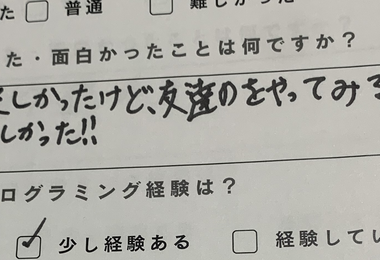 た □ 普通 □ 難しかった
た・面白かったことは何ですか？
しかったけど、友達のをやってみる
しかった!!
ログラミング経験は？
少し経験ある □ 経験してい